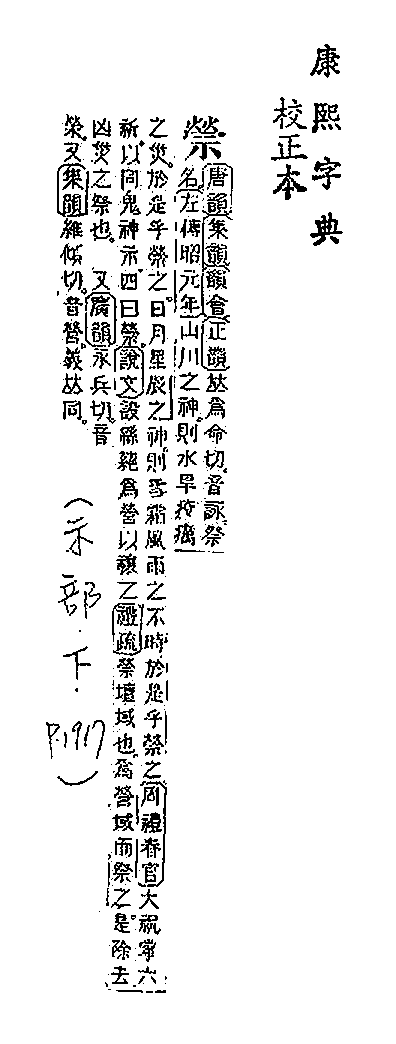 康熙字典
校正本
禜
唐韻集韻韻會正韻𠀤爲命切音詠祭
名左傳昭元年山川之神則水旱疫癘
之災於是乎禜之日月星辰之神則雪霜風雨之不時於是乎禜之周禮春官大祝掌六
祈以同鬼神示四曰禜說文設緜蕝爲營以禳之證疏禜壇域也爲營域而祭之是除去
凶災之祭也 又廣韻永兵切音
榮又集韻維傾切音營義𠀤同
(示部.下.
P.1917)